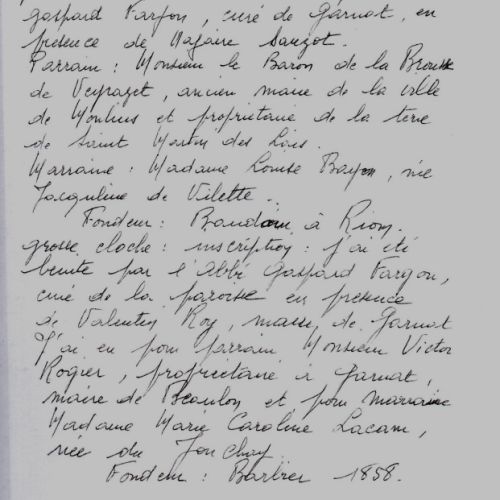 gaspard Fargon, curé de Garnat, en
présence de Nazaire Sauzot.
Parrain : Monsieur le Baron de la Brousse
de Veyrazet, ancien maire de la ville
de Moulins et propriétaire de la terre
de Saint Martin des Lais.
Marraine : Madame Louise Bayon, née
Jacqueline de Vilette.
Fondeur : Baudoin à Riom.
grosse cloche : inscription : j'ai été
benite par l'Abbé Gaspard Fargon,
curé de la paroisse en présence
de Valentin Roy, maire de Garnat
J'ai eu pour parrain Monsieur Victor
Rogier, propriétaire à Garnat,
maire de Beaulon et pour marraine
Madame Marie Caroline Lacam,
née du Jonchay
Fondeur : Barbier 1858.